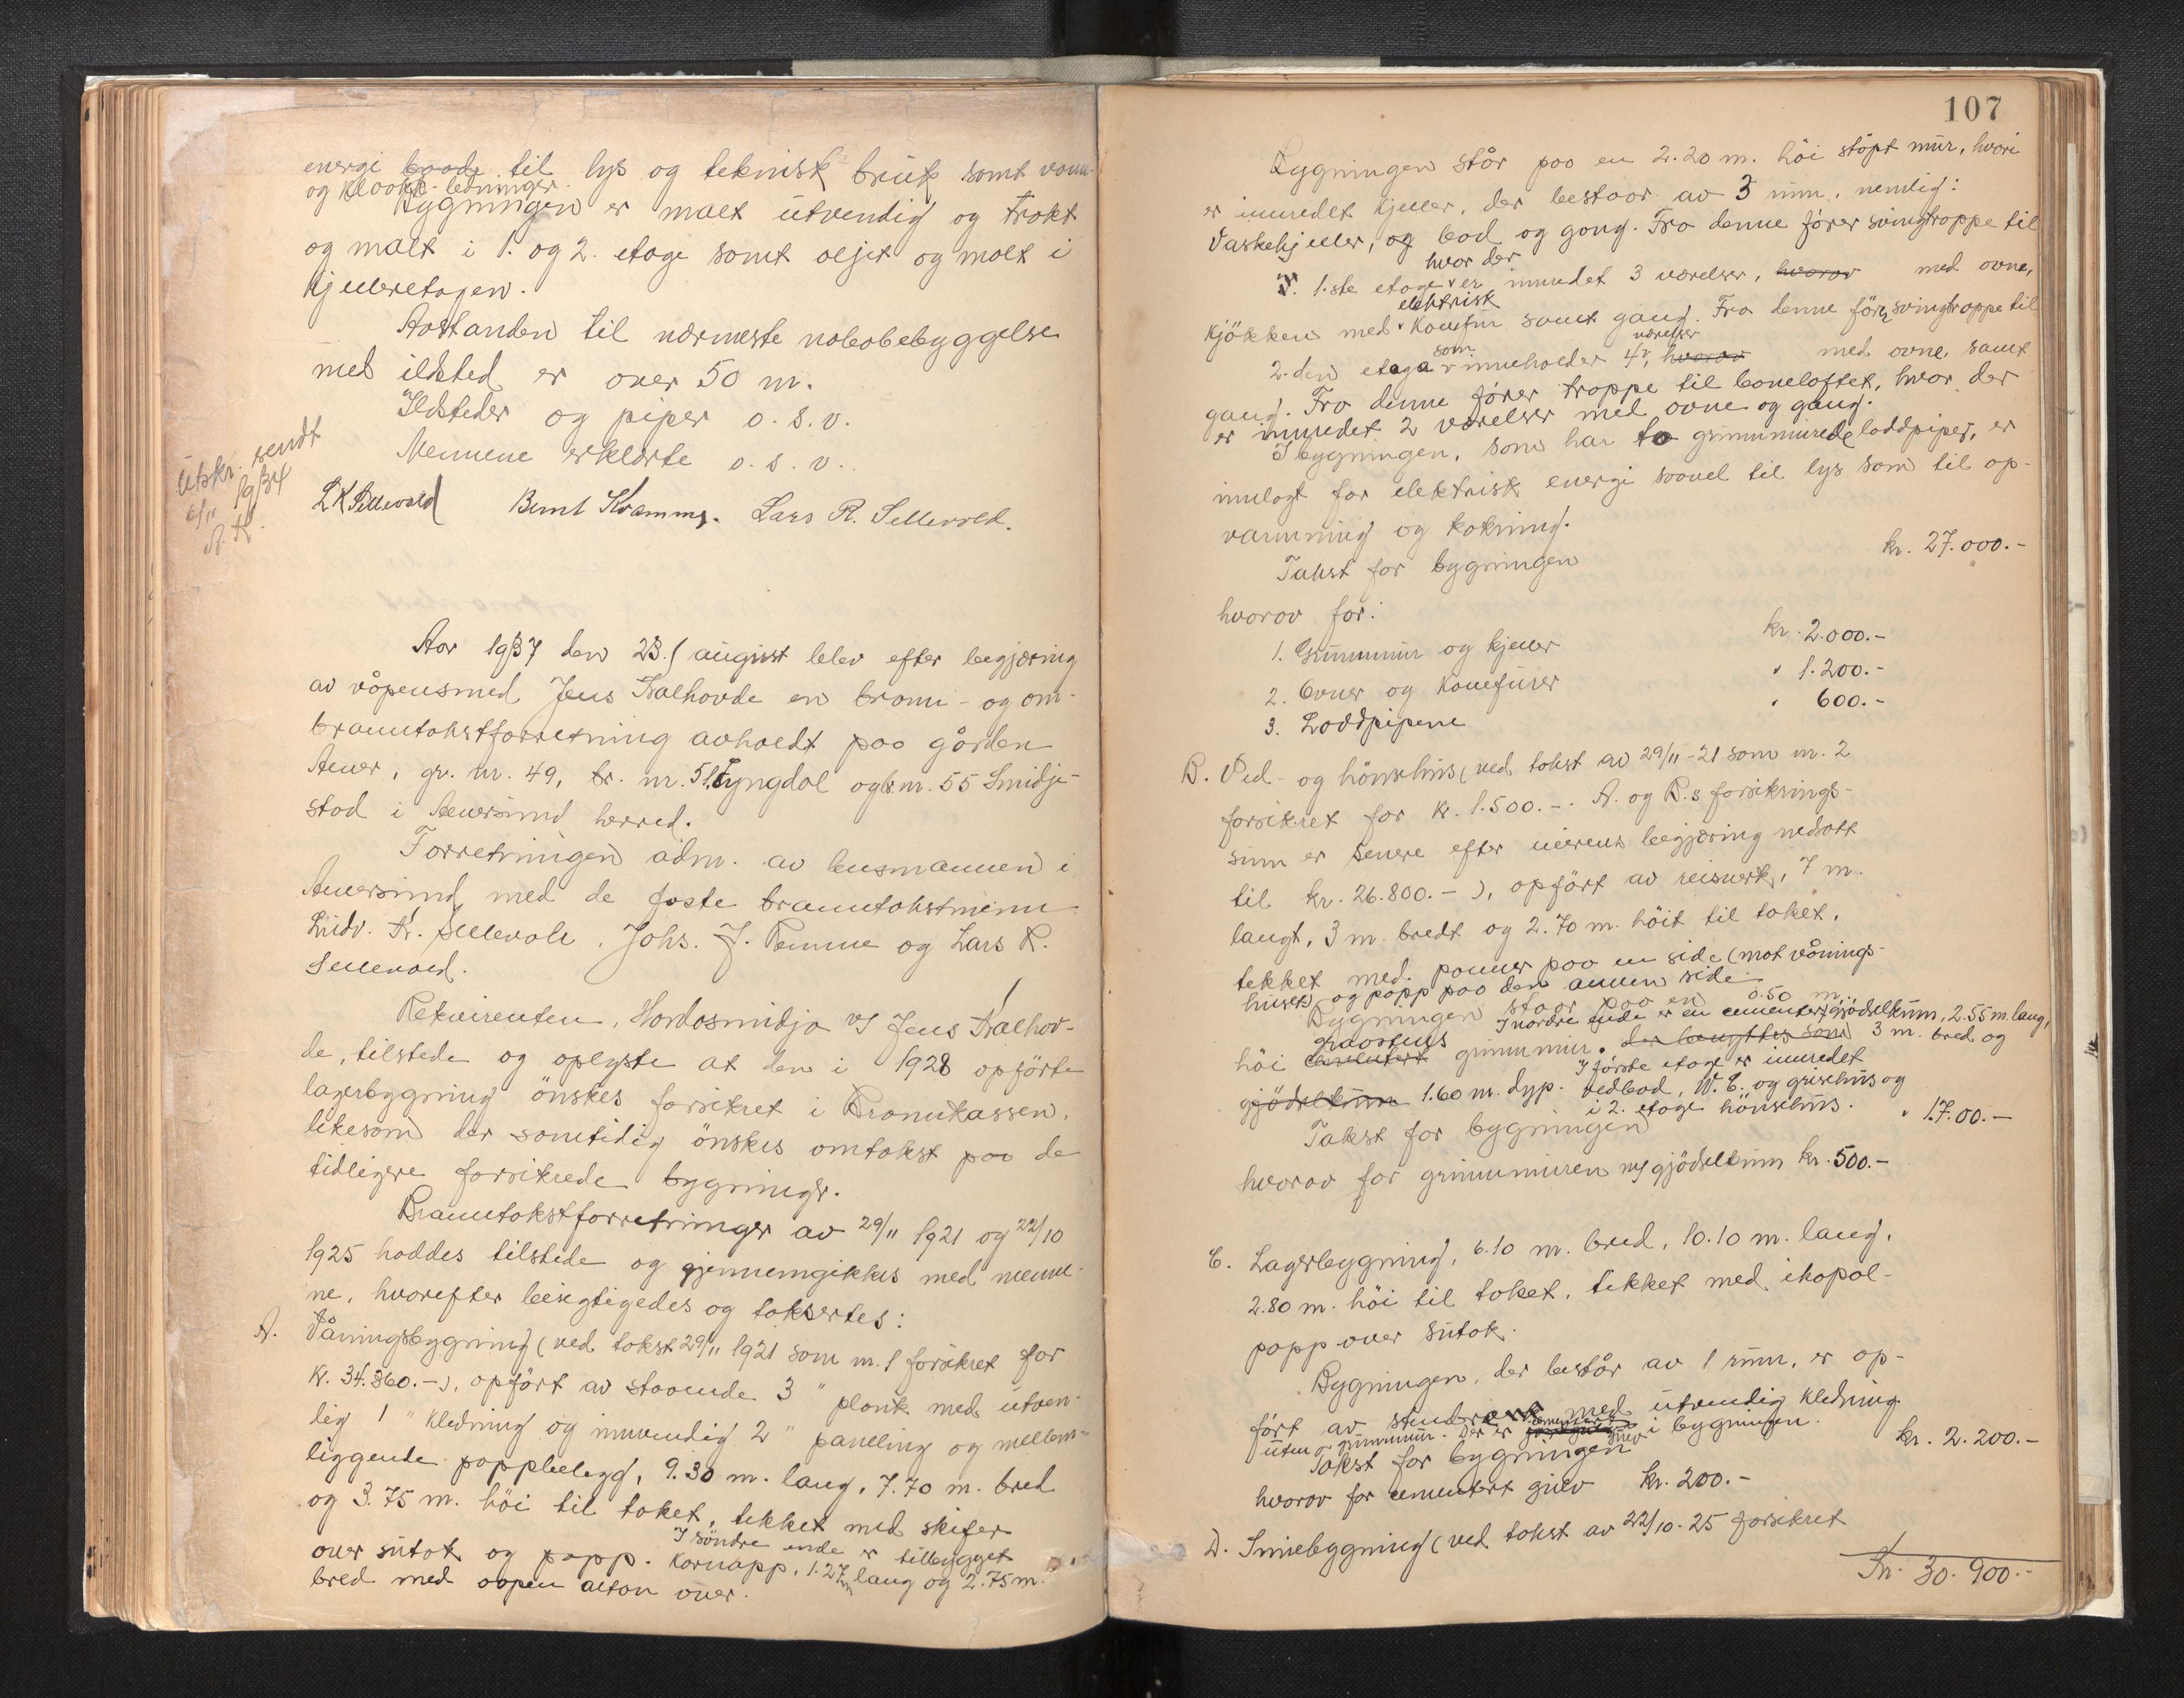 energi baade til lys og teknisk bruk samt vann-
og kloakk-ledninger.
Bygningen er malt utvendig og trokt
og malt i 1. og 2. etage samt oljet og malt i
kjelleretagen.
Avstanden til nærmeste nabobebyggelse
med ildsted er over 50 m.
Ildsteder og piper o. s. v.
Mennene erklærte o. s. v.
Utskr. sendt
6/11 1934
L K Sellevold Bernt Kramms. Lars R. Sellevold.
Aar 1937 den 23. august blev efter begjæring
av våpensmed Jens Kalhovde en brann- og om-
branntakstforretning avholdt paa gården
Alver, gr. nr. 49, br. nr. 51 Lyngdal og b.nr. 55 Smidje-
stad i Alversund herred.
Forretningen adm. av lensmannen i
Alversund med de faste branntakstmenn
Ludv. K. Sellevold, Johs. J. Remme og Lars R.
Sellevold.
Rekvirenten, Hordasmidja v/ Jens Kalhov-
de, tilstede og oplyste at den i 1928 opførte
lagerbygning ønskes forsikret i Brannkassen,
likesom der samtidig ønskes omtakst paa de
tidligere forsikrede bygninger.
Branntakstforretninger av 29/11 1921 og 22/10
1925 haddes tilstede og gjennemgikkes med menne-
ne, hvorefter besigtigedes og taksertes:
A. Våningsbygning (ved takst 29/11 1921 som nr. 1 forsikret for
kr. 34.360.-), opført av staaende 3" plank med utven-
dig 1" kledning og innvendig 2" paneling og mellem-
liggende pappbelegg, 9.30 m. lang, 7.70 m. bred
og 3.75 m. høi til taket, tekket med skifer
over sutak og papp. I søndre ende er tilbygget
karnapp, 1.27 m lang og 2.75 m.
bred med aapen altan over.
107
Bygningen står paa en 2.20 m. høi støpt mur, hvori
er innredet kjeller, der bestaar av 3 rum, nemlig:
Vaskekjeller, og bod og gang. Fra denne fører svingtrappe til
1.ste etage hvor der er innredet 3 værelser, hvorav med ovne,
kjøkken med elektrisk komfur samt gang. Fra denne fører svingtrappe til
2.den etage som inneholder 4 værelser hvorav med ovne, samt
gang. Fra denne fører trappe til loneloftet, hvor der
er innredet 2 værelser med ovne og gang.
I bygningen, som har to grunnmurede loddpiper, er
innlagt for elektrisk energi saavel til lys som til op-
varmning og kokning.
Takst for bygningen kr. 27.000.-
hvorav for:
1. Grunnmur og kjeller kr. 2.000.-
2. Ovner og komfurer " 1.200.-
3. Loddpipene " 600.-
B. Ved- og hønsehus (ved takst av 29/11-21 som nr. 2
forsikret for kr. 1.500.-. A. og B.s forsikrings-
sum er senere efter eierens begjæring nedsatt
til kr. 26.800.-), opført av reisverk, 7 m.
langt, 3 m. bredt og 2.70 m. høit til taket,
tekket med panner paa en side (mot vånings-
huset) og papp paa den annen side.
Bygningen staar paa en 0.50 m.
I nordre ende er en cementert gjødselkum, 2.55 m. lang,
høi cementert graastens grunnmur. der benyttes som 3 m. bred og
gjødselkum 1.60 m. dyp. I første etage er innredet
vedbod, W.C. og grisehus og
i 2. etage hønsehus.
Takst for bygningen " 1.700.-
hvorav for grunnmuren m/ gjødselkum kr. 500.-
C. Lagerbygning, 6.10 m. bred, 10.10 m. lang,
2.80 m. høi til taket, tekket med ikopal-
papp over sutak.
Bygningen, der består av 1 rum, er op-
ført av stenderverk med utvendig kledning
uten grunnmur. Der er cementert gulv i bygningen.
Takst for bygningen kr. 2.200.-
hvorav for cementert gulv kr. 200.-
D. Smiebygning (ved takst av 22/10-25 forsikret
Kr. 30.900.-